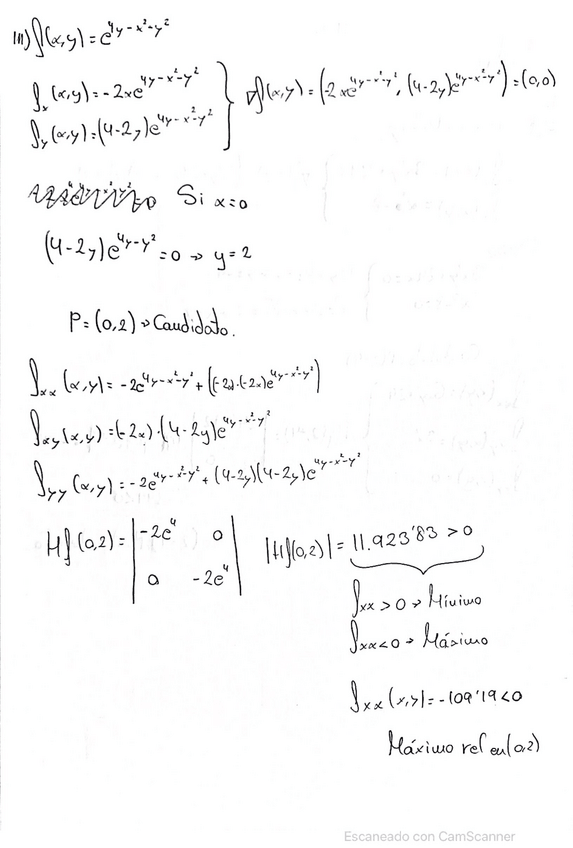 m) f(x,y) = e^{4y-x²-y²}
f_x(x,y) = -2xe^{4y-x²-y²}
f_y(x,y) = (4-2y)e^{4y-x²-y²}
∇f(x,y) = (-2xe^{4y-x²-y²}, (4-2y)e^{4y-x²-y²}) = (0,0)
Si x=0
(4-2y)e^{4y-y²} = 0 → y=2
P=(0,2) → Candidato.
f_xx(x,y) = -2e^{4y-x²-y²} + ((-2x)·(-2x)e^{4y-x²-y²})
f_xy(x,y) = (-2x)·(4-2y)e^{4y-x²-y²}
f_yy(x,y) = -2e^{4y-x²-y²} + (4-2y)(4-2y)e^{4y-x²-y²}
Hf(0,2) = | -2e⁴ 0 |
| 0 -2e⁴ |
|Hf(0,2)| = 11.923'83 > 0
f_xx > 0 → Mínimo
f_xx < 0 → Máximo
f_xx(x,y) = -109'19 < 0
Máximo rel en (0,2)
Escaneado con CamScanner